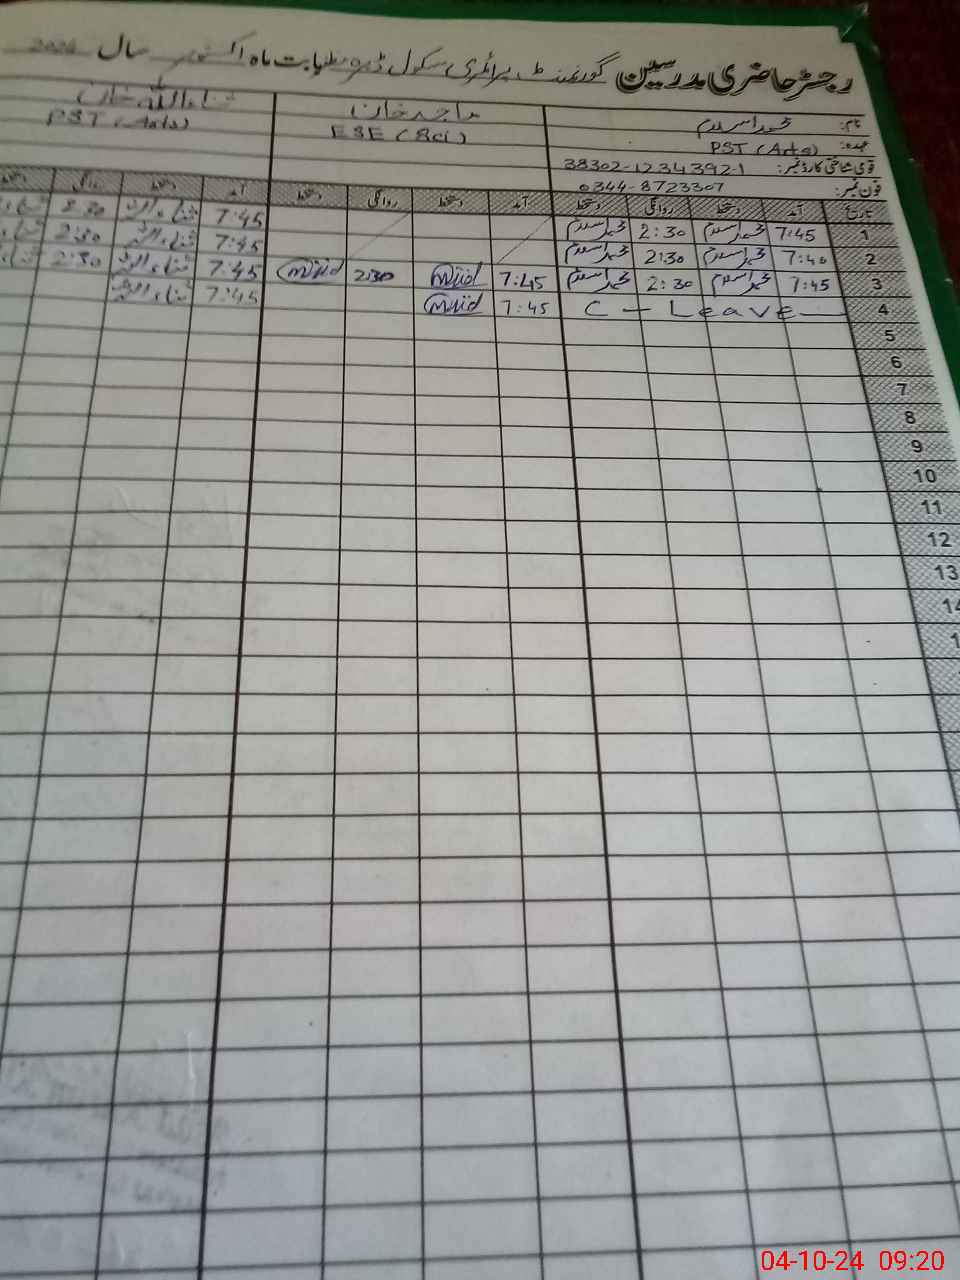 رجسٹر حاضری مدرسین گورنمنٹ پرائمری سکول بابت ماہ اکتوبر سال 2024
نام: محمد اسلام ماجد خان ثناء اللہ خان
عہدہ: PST (Arts) ESE (Sci) PST (Arts)
قومی شناختی کارڈ نمبر: 38302-1234392-1
فون نمبر: 0344-8723307
تاریخ آمد دستخط روانگی دستخط آمد دستخط روانگی دستخط آمد دستخط روانگی دستخط
1 7:45 محمد اسلام 2:30 محمد اسلام 7:45 ثناء اللہ 2:30 ثناء
2 7:40 محمد اسلام 2:30 محمد اسلام 7:45 ثناء اللہ 2:30 ثناء
3 7:45 محمد اسلام 2:30 محمد اسلام 7:45 2:30 7:45 ثناء اللہ 2:30 ثناء
4 C - Leave 7:45 7:45 ثناء اللہ
5
6
7
8
9
10
11
12
13
14
04-10-24 09:20